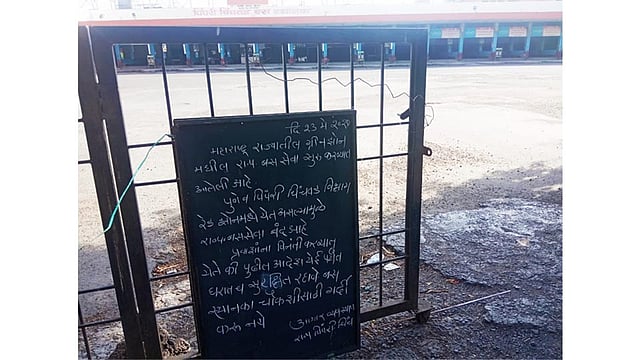 पिंपरी चिंचवड बस स्थानक
दि 23 मे २०२०
महाराष्ट्र राज्यातील ग्रीनझोन
मधील राज्य बससेवा सुरु करण्यात
आलेली आहे
पुणे व पिंपरी चिंचवड विभाग
रेड झोनमध्ये येत असल्यामुळे
राज्य बससेवा बंद आहे
प्रवाशांना विनंती करण्यात
येते की पुढील आदेश येई पर्यंत
घरातच सुरक्षित रहावे बस
स्थानका चौकशीसाठी गर्दी
करू नये
आगार व्यवस्थापक
राप पिंपरी चिंच